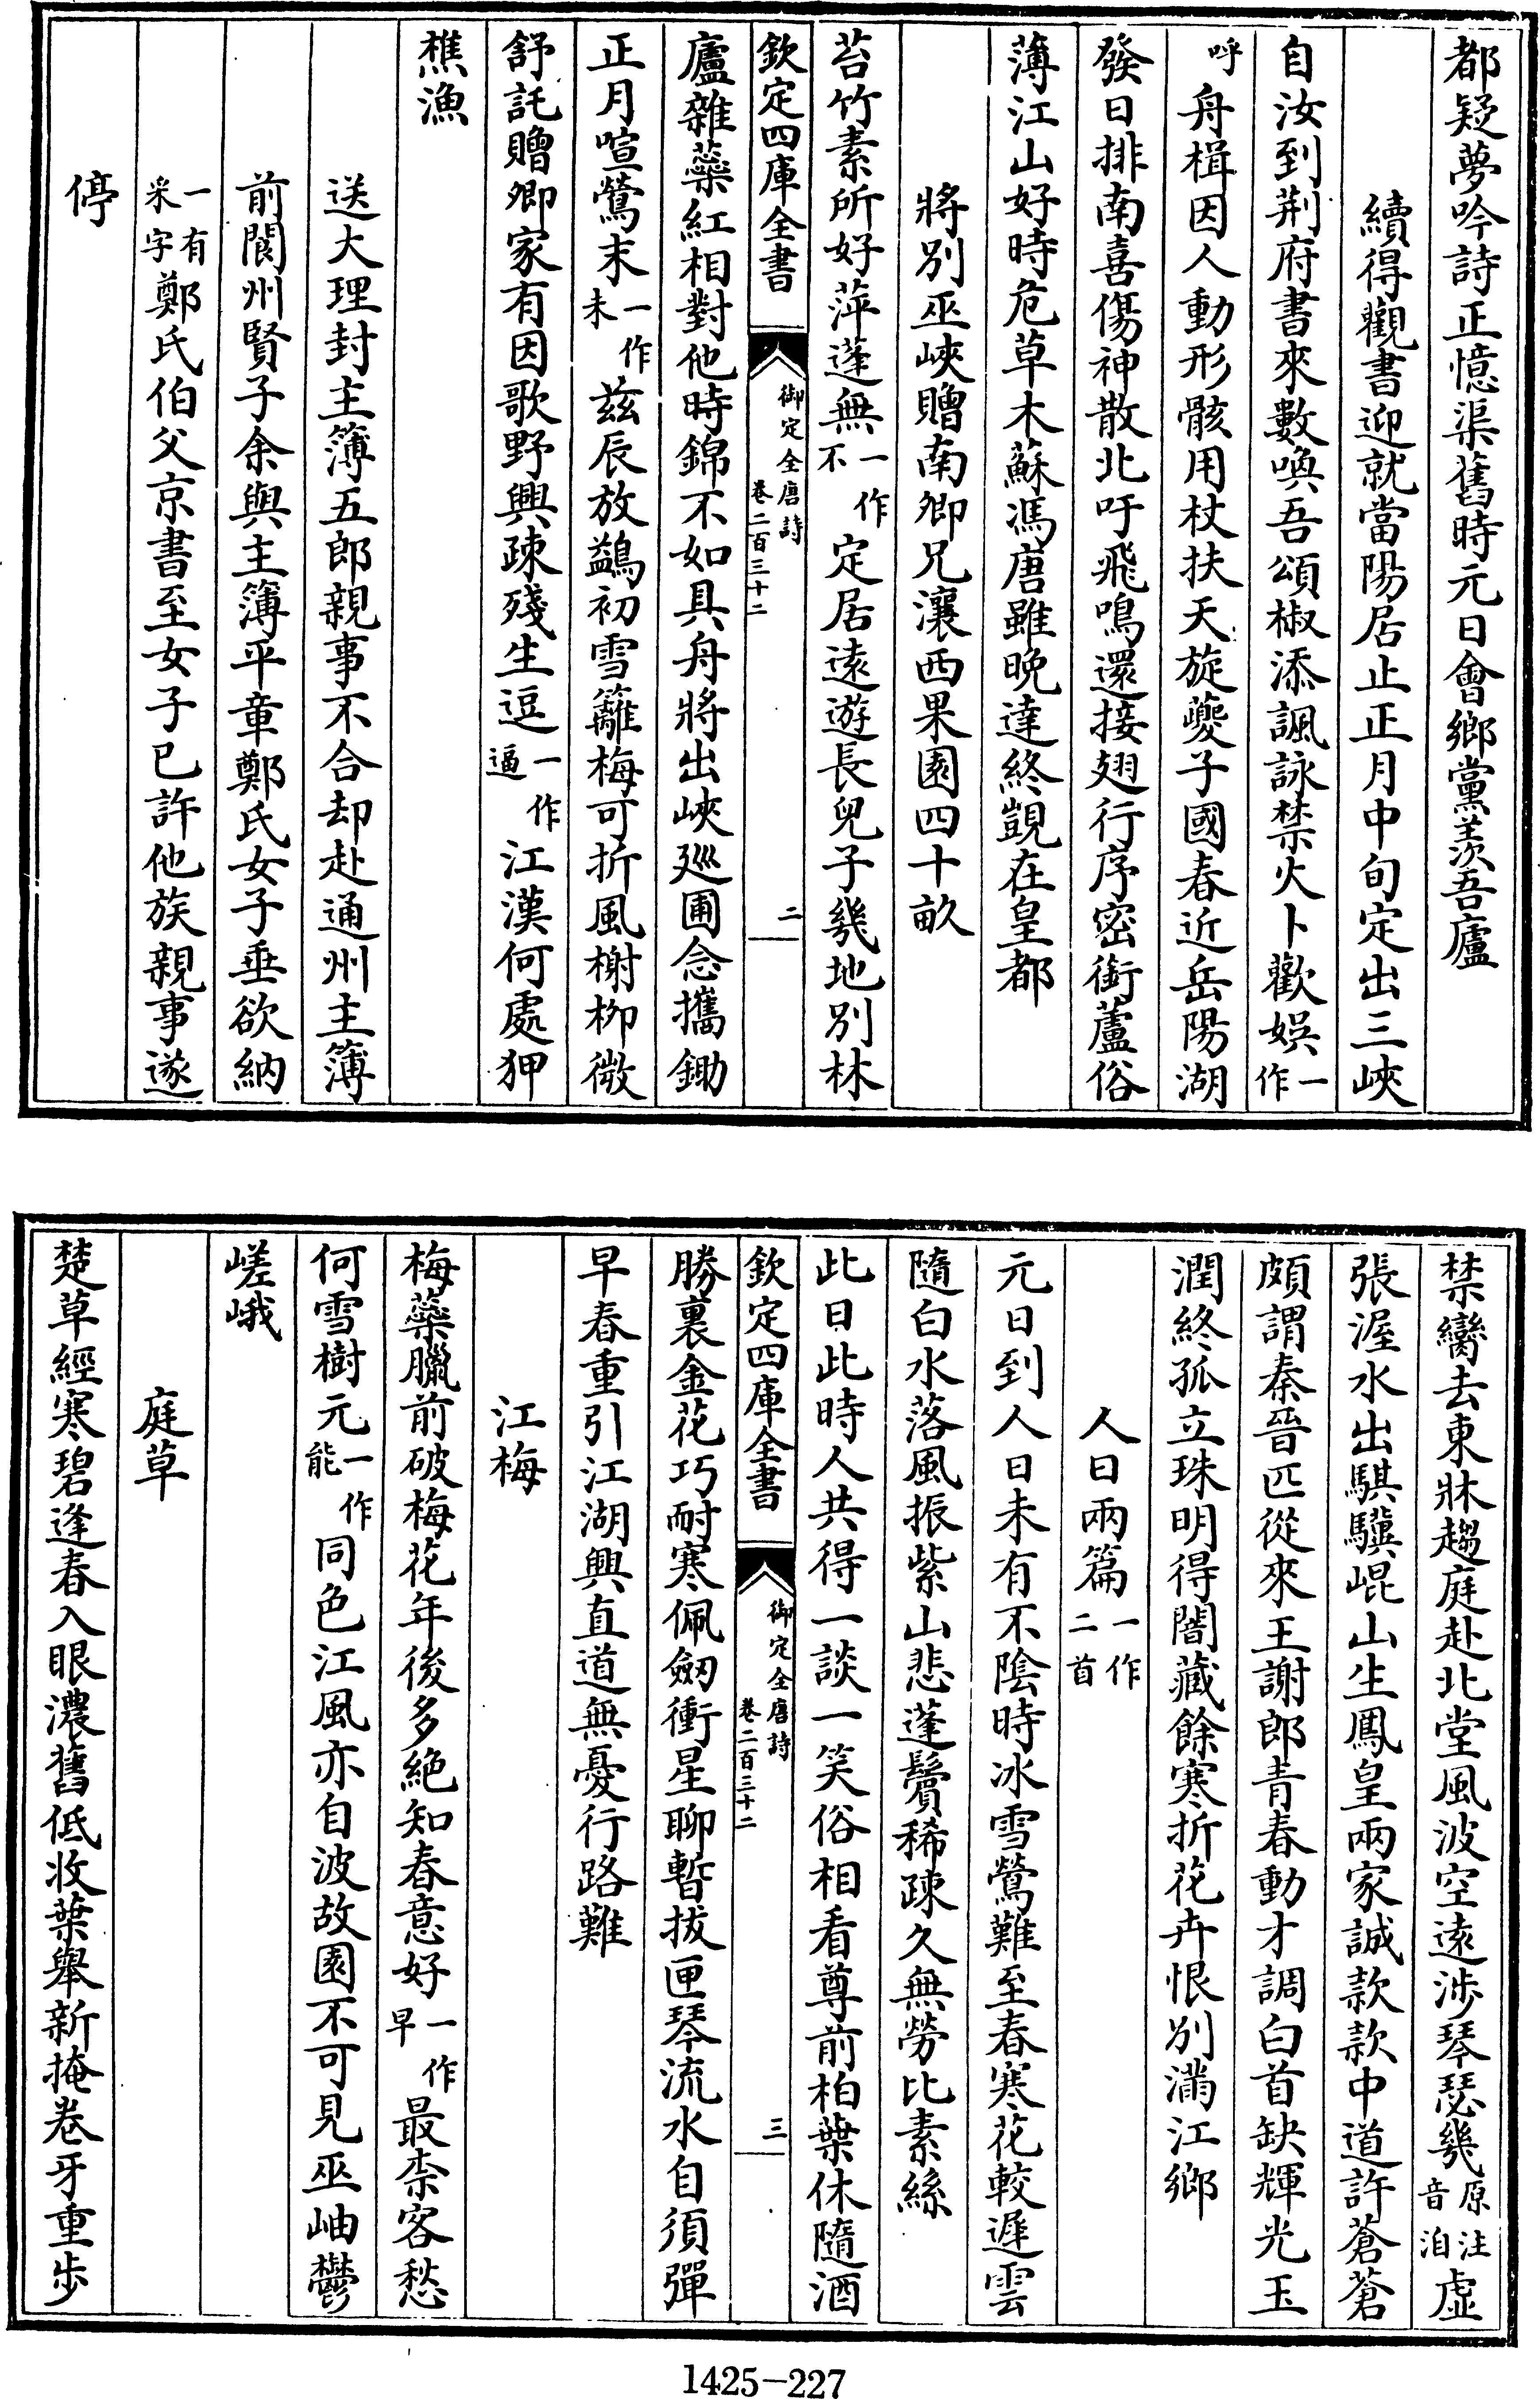 都疑夢吟詩正憶渠舊時元日會鄉黨羨吾廬
續得觀書迎就當陽居止正月中旬定出三峽
自汝到荆府書來數喚吾頌椒添諷詠禁火卜歡娛一作
呼舟楫因人動形骸用杖扶天旋夔子國春近岳陽湖
發日排南喜傷神散北吁飛鳴還接翅行序密銜蘆俗
薄江山好時危草木蘇馮唐雖晚達終覬在皇都
將別巫峽贈南卿兄瀼西果園四十畝
苔竹素所好萍蓬無一作不定居遠遊長兒子幾地別林
欽定四庫全書
御定全唐詩
卷二百三十二
二
廬雜蘂紅相對他時錦不如具舟將出峽廵圃念攜鋤
正月喧鶯末一作未茲辰放鷁初雪籬梅可折風榭栁微
舒託贈卿家有因歌野興疎殘生逗一作逼江漢何處狎
樵漁
送大理封主簿五郎親事不合却赴通州主簿
前閬州賢子余與主簿平章鄭氏女子垂欲納
一有采字鄭氏伯父京書至女子已許他族親事遂
停
禁臠去東牀趨庭赴北堂風波空遠涉琴瑟幾原注音洎虛
張渥水出騏驥崐山生鳳皇兩家誠款款中道許蒼蒼
頗謂秦晉匹從來王謝郎青春動才調白首缺輝光玉
潤終孤立珠明得闇藏餘寒折花卉恨別滿江鄉
人日兩篇一作二首
元日到人日未有不陰時冰雪鶯難至春寒花較遲雲
隨白水落風振紫山悲蓬鬢稀疎久無勞比素絲
此日此時人共得一談一笑俗相看尊前柏葉休隨酒
欽定四庫全書
御定全唐詩
卷二百三十二
三
勝裏金花巧耐寒佩劒衝星聊暫拔匣琴流水自須彈
早春重引江湖興直道無憂行路難
江梅
梅蘂臘前破梅花年後多絶知春意好一作早最柰客愁
何雪樹元一作能同色江風亦自波故園不可見巫岫鬱
嵯峨
庭草
楚草經寒碧逢春入眼濃舊低收葉舉新掩卷牙重步
1425-227